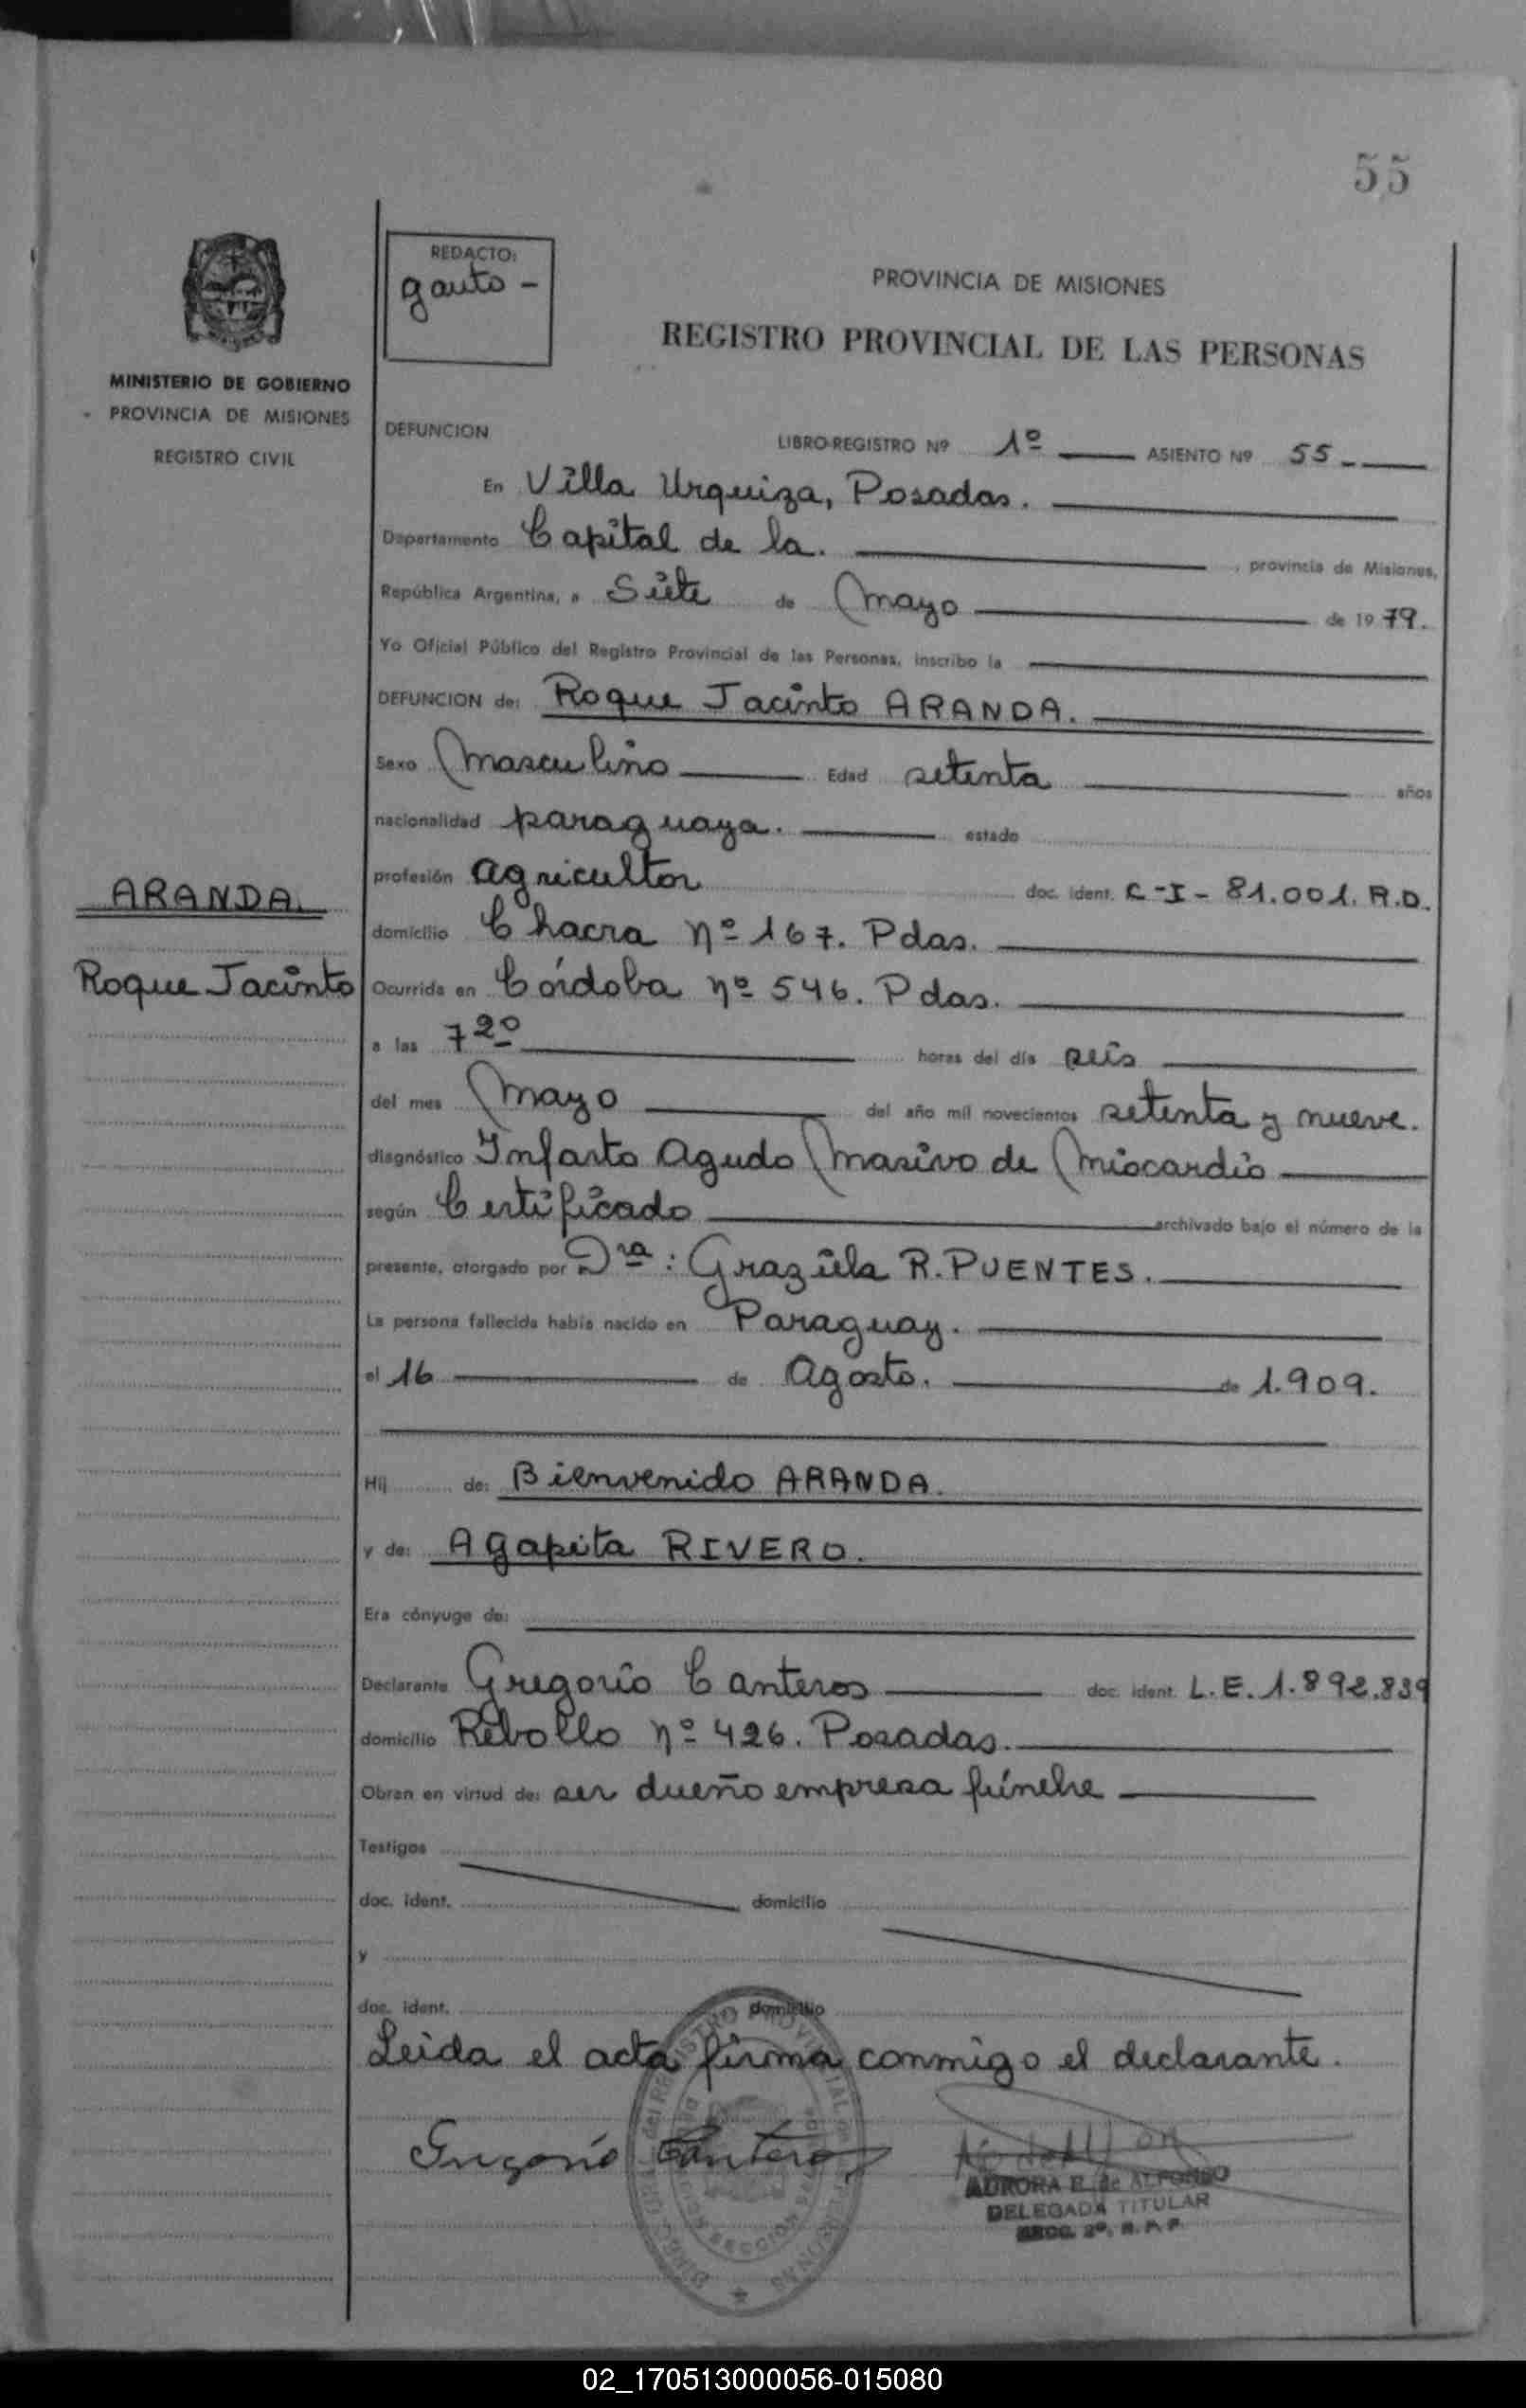 55
REDACTO:
gauto -
PROVINCIA DE MISIONES
REGISTRO PROVINCIAL DE LAS PERSONAS
MINISTERIO DE GOBIERNO
PROVINCIA DE MISIONES
REGISTRO CIVIL
DEFUNCION LIBRO-REGISTRO Nº 1º ASIENTO Nº 55
En Villa Urquiza, Posadas.
Departamento Capital de la. , provincia de Misiones,
República Argentina, a Siete de Mayo de 1979.
Yo Oficial Público del Registro Provincial de las Personas, inscribo la
DEFUNCION de: Roque Jacinto ARANDA.
Sexo Masculino Edad setenta años
nacionalidad paraguaya. estado
profesión agricultor doc. ident. C-I- 81.001. R.D.
ARANDA.
domicilio Chacra nº 167. Pdas.
Roque Jacinto
Ocurrida en Córdoba nº 546. Pdas.
a las 7 20 horas del día seis
del mes Mayo del año mil novecientos setenta y nueve.
diagnóstico Infarto Agudo Masivo de Miocardio
según Certificado archivado bajo el número de la
presente, otorgado por Dra: Graziela R. PUENTES.
La persona fallecida había nacido en Paraguay.
el 16 de Agosto. de 1.909.
Hij de: Bienvenido ARANDA.
y de: Agapita RIVERO.
Era cónyuge de:
Declarante Gregorio Canteros doc. ident. L.E. 1.892.839
domicilio Rebollo nº 426. Posadas.
Obran en virtud de: ser dueño empresa fúnebre
Testigos
doc. ident. domicilio
y
doc. ident. domicilio
Leida el acta firma conmigo el declarante.
Gregorio Canteros
AURORA E. de ALFONSO
DELEGADA TITULAR
SECC. 2º. R. P. P.
02_170513000056-015080